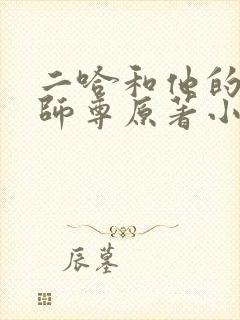 二哈和他的
師尊原著小
辰墓